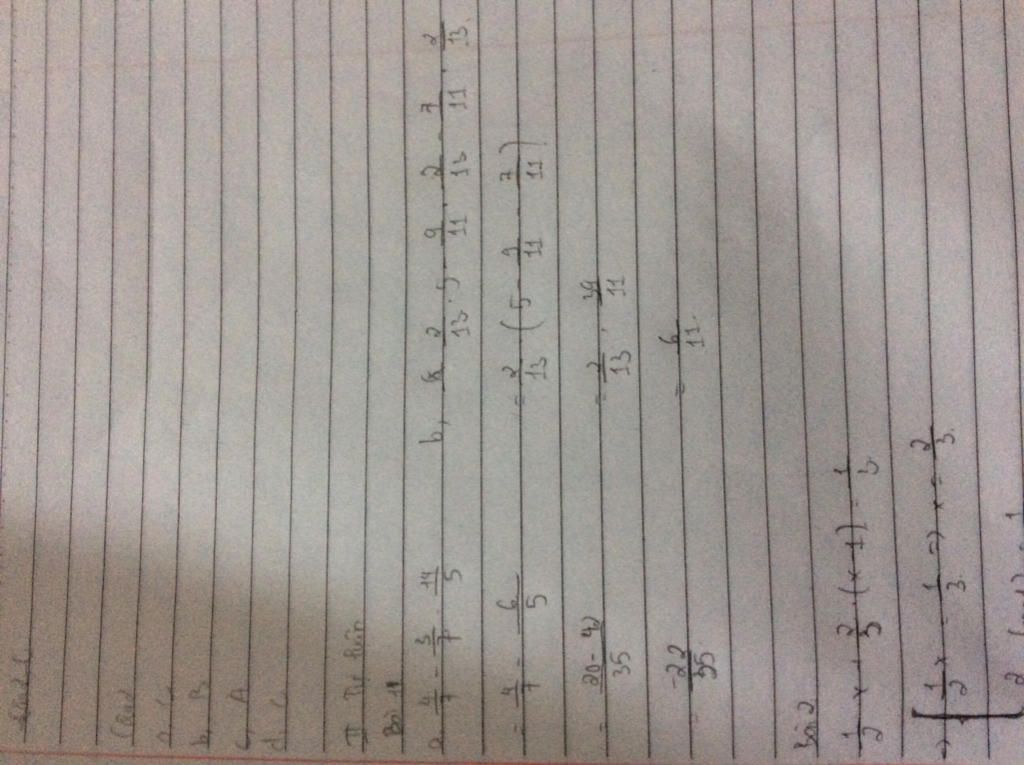 Câu 2
a. C
b. B
c. A
d. C
II Tự luận
Bài 1
a 4/7 - 3/7 · 14/5
= 4/7 - 6/5
= 20 - 42/35
= -22/35
b, 2/13 · 5 - 9/11 · 2/13 - 7/11 · 2/13
= 2/13 (5 - 9/11 - 7/11)
= 2/13 · 39/11
= 6/11
Bài 2
1/2 x + 2/3 · (x - 1) = 1/3
=> [ 1/2 x = 1/3 => x = 2/3